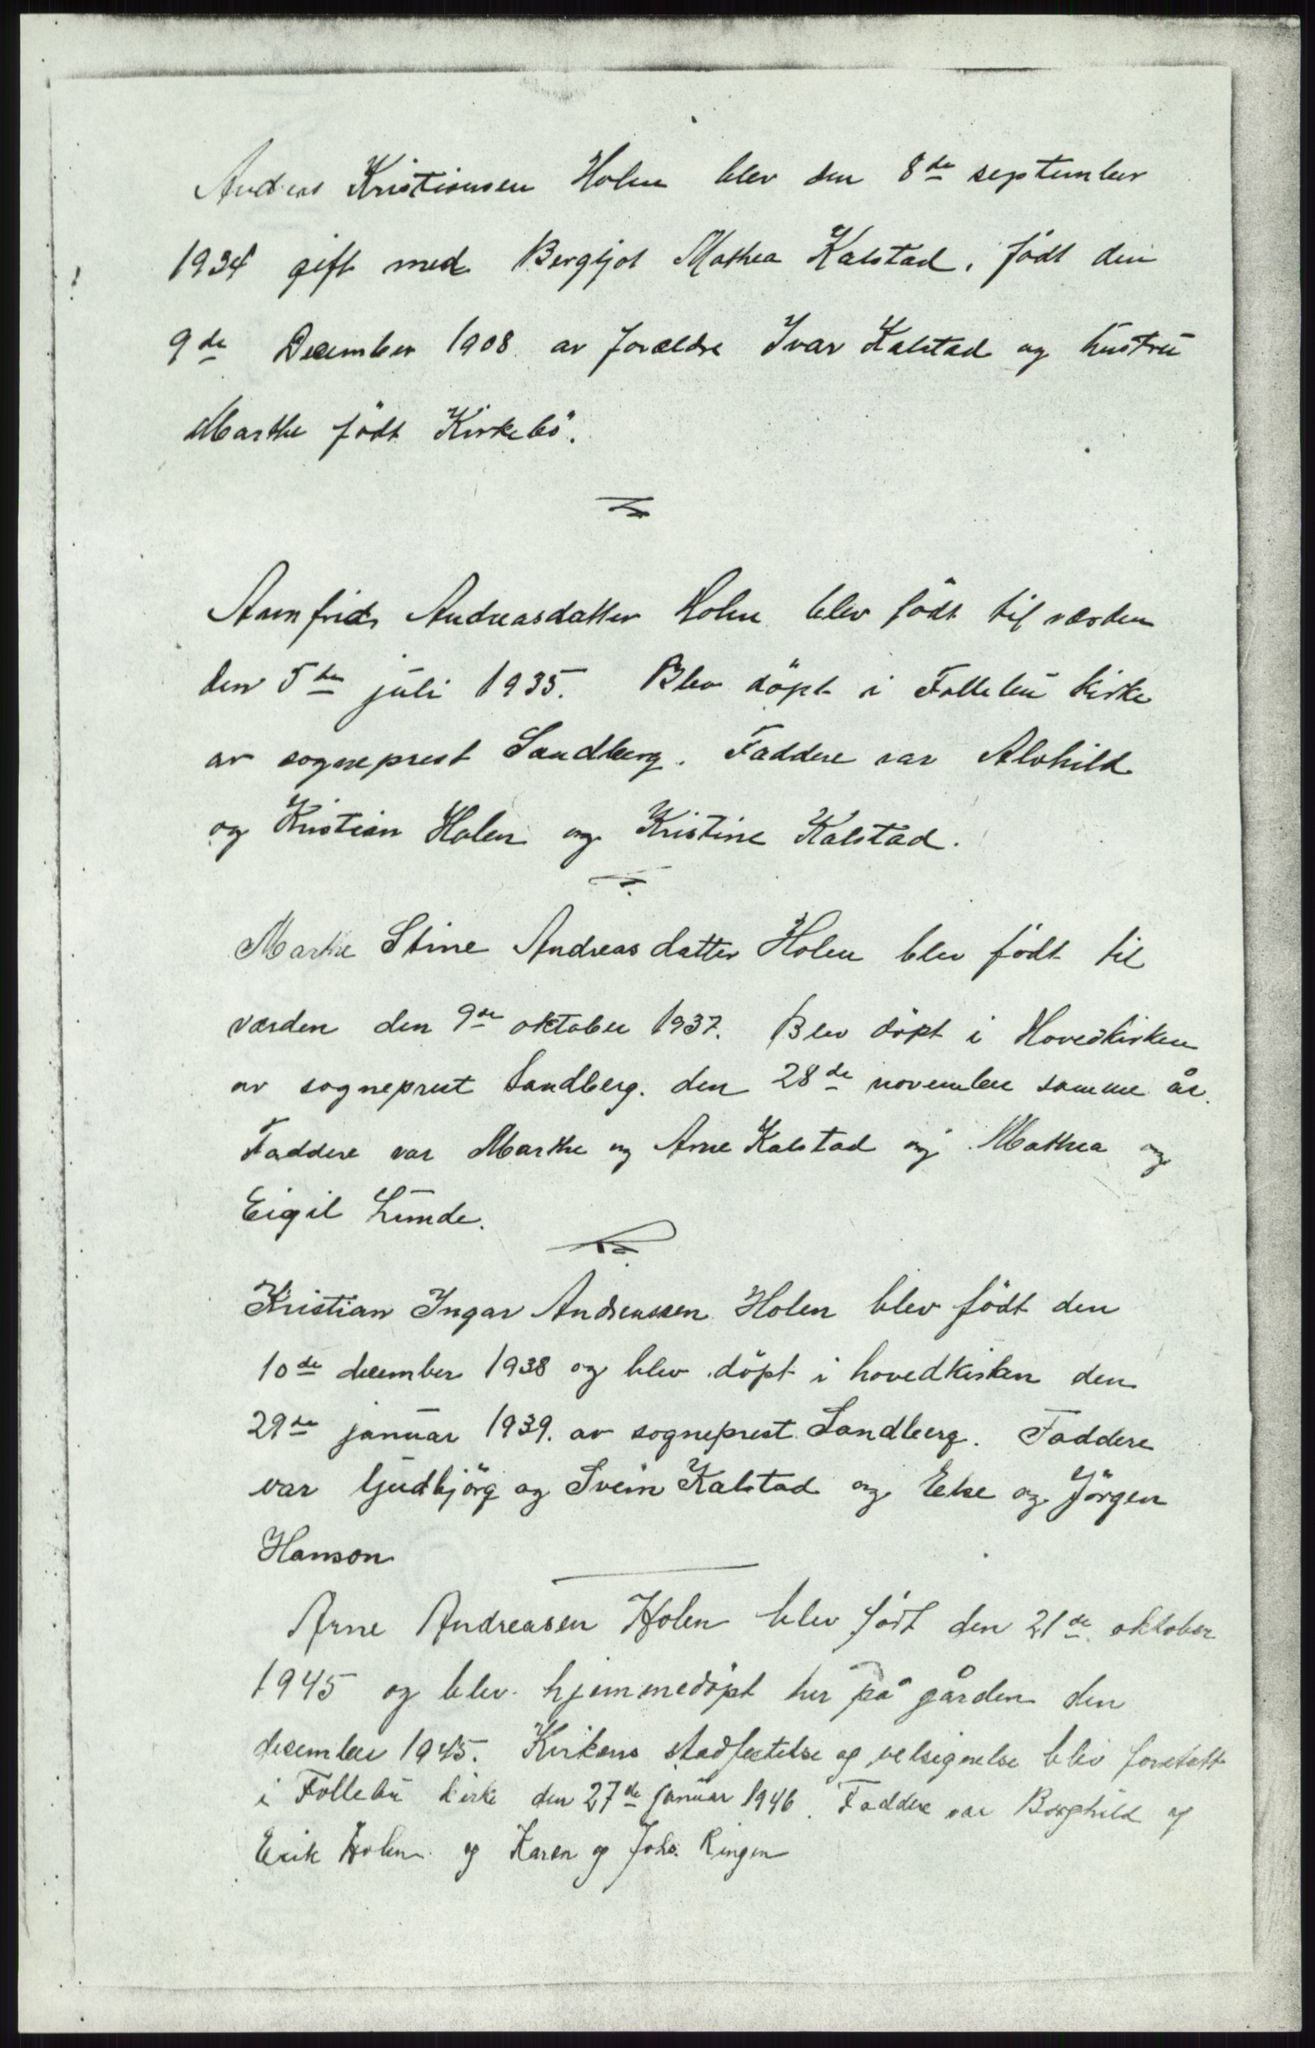 Andreas Kristiansen Holen blev den 8de september
1934 gift med Bergljot Mathea Kalstad, født den
9de December 1908 av forældre Ivar Kalstad og hustru
Marthe født Kirkebö.
Arnfrid Andreasdatter Holen blev född til verden
den 5te juli 1935. Blev döpt i Follebu kirke
av sogneprest Sandberg. Faddere var Alvhild
og Kristian Holen og Kristine Kalstad.
Marthe Stine Andreasdatter Holen blev født til
verden den 9de oktober 1937. Blev döpt i Hovedkirken
av sogneprest Sandberg. den 28de november samme år.
Faddere var Marthe og Arne Kalstad og Mathea og
Eigil Lunde.
Kristian Ingar Andreassen Holen blev født den
10de december 1938 og blev döpt i hovedkirken den
29de januar 1939. av sogneprest Sandberg. Faddere
var Gudbjörg og Svein Kalstad og Else og Jörgen
Hanson
Arne Andreasen Holen blev født den 21de oktober
1945 og blev hjemmedöpt her på gården den
december 1945. Kirkens stadfestelse og velsignelse blev foretatt
i Follebu kirke den 27de januar 1946. Faddere var Borghild og
Erik Holen og Karen og Johs. Ringen